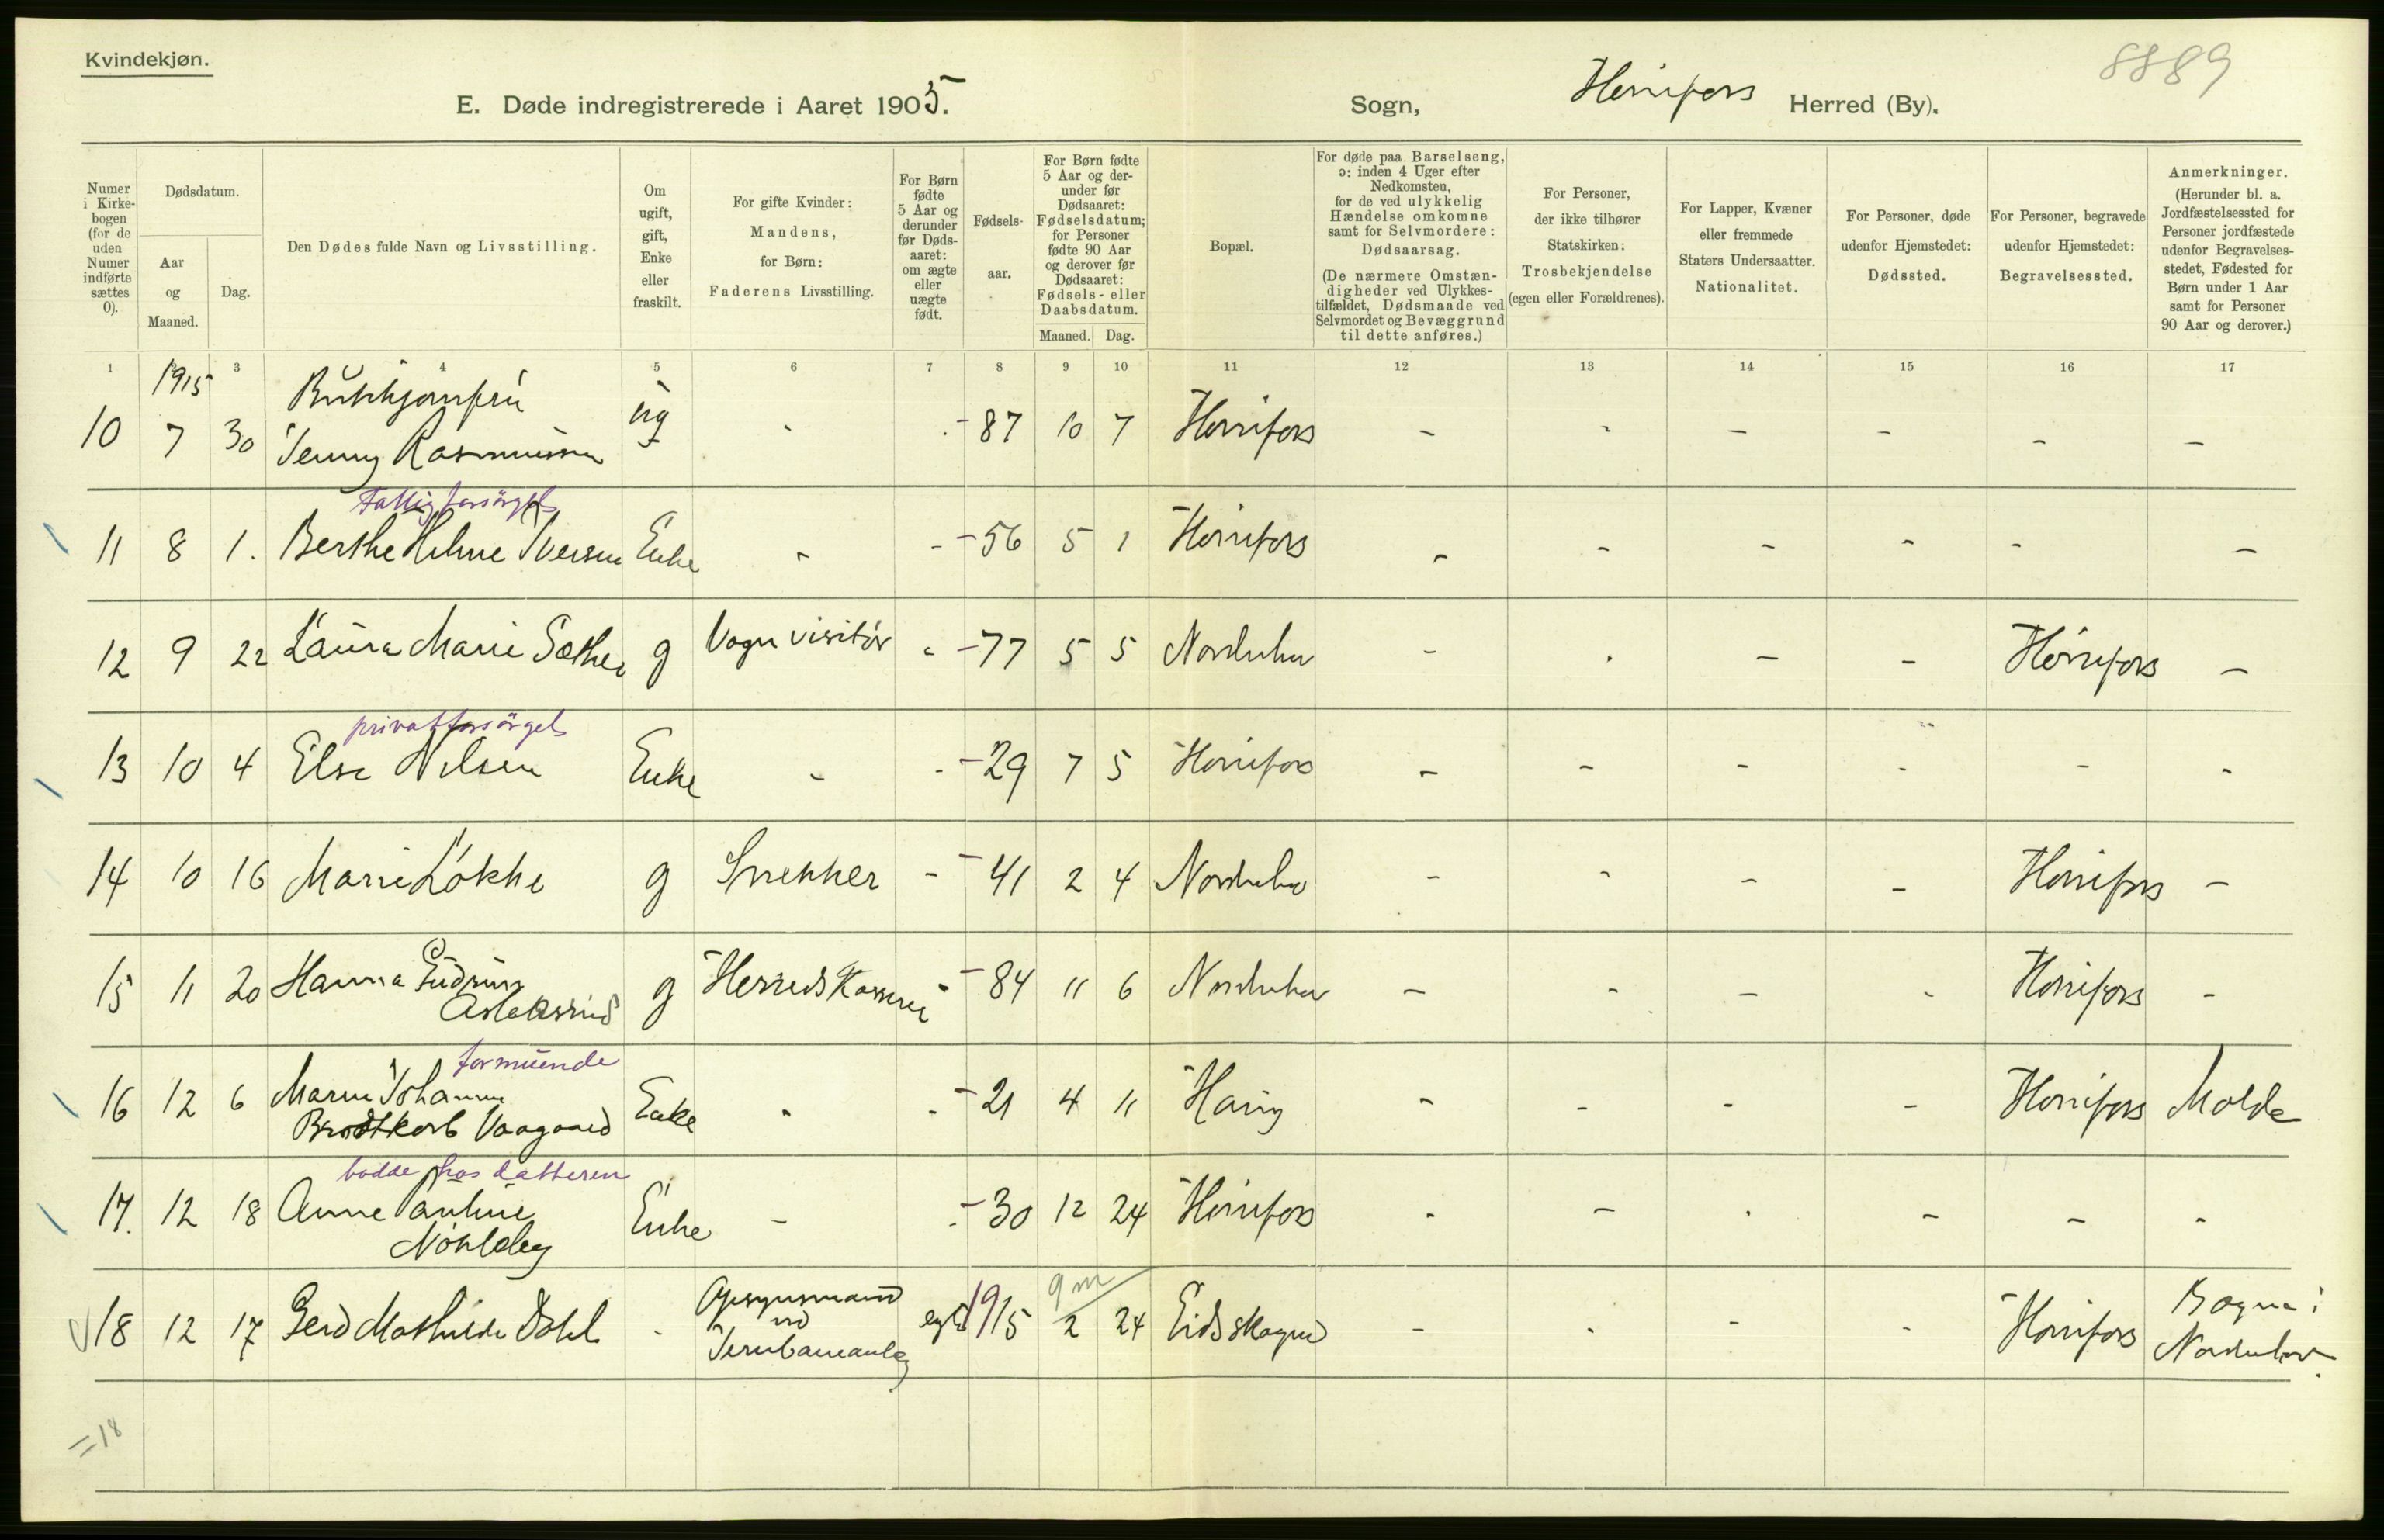 Kvindekjøn.
8889
E. Døde indregistrerede i Aaret 1905.
Sogn, Hønefoss Herred (By).
Numer i Kirke-bogen (for de uden Numer indførte sættes 0).
Dødsdatum.
Aar og Maaned.
Dag.
Den Dødes fulde Navn og Livsstilling.
Om ugift, gift, Enke eller fraskilt.
For gifte Kvinder: Mandens, for Børn: Faderens Livsstilling.
For Børn fødte 5 Aar og derunder før Døds-aaret: om ægte eller uægte født.
Fødsels-aar.
For Børn fødte 5 Aar og der-under før Dødsaaret: Fødselsdatum; for Personer fødte 90 Aar og derover før Dødsaaret: Fødsels- eller Daabsdatum.
Maaned. Dag.
Bopæl.
For døde paa Barselseng, ɔ: inden 4 Uger efter Nedkomsten, for de ved ulykkelig Hændelse omkomne samt for Selvmordere: Dødsaarsag. (De nærmere Omstæn-digheder ved Ulykkes-tilfældet, Dødsmaade ved Selvmordet og Bevæggrund til dette anføres.)
For Personer, der ikke tilhører Statskirken: Trosbekjendelse (egen eller Forældrenes).
For Lapper, Kvæner eller fremmede Staters Undersaatter. Nationalitet.
For Personer, døde udenfor Hjemstedet: Dødssted.
For Personer, begravede udenfor Hjemstedet: Begravelsessted.
Anmerkninger. (Herunder bl. a. Jordfæstelsessted for Personer jordfæstede udenfor Begravelses-stedet, Fødested for Børn under 1 Aar samt for Personer 90 Aar og derover.)
1 3 4 5 6 7 8 9 10 11 12 13 14 15 16 17
1915
Butikjomfru
10 7 30 Jenny Rasmussen ug - - -87 10 7 Hønefoss - - - - - -
Fattigforsørget
11 8 1. Berthe Helene Iversen Enke - - -56 5 1 Hønefoss - - - - - -
12 9 22 Laura Marie Sæther g Vognvisitør - -77 5 5 Norderhov - - - - Hønefoss -
privatforsørget
13 10 4 Else Nilsen Enke - - -29 7 5 Hønefoss - - - - - -
14 10 16 Marie Løkke g Snekker - -41 2 4 Norderhov - - - - Hønefoss -
15 11 20 Hanna Gudrun g Herredskasserer - -84 11 6 Norderhov - - - - Hønefoss -
Aslaksrud
formuende
16 12 6 Maren Johanne Enke - - -21 4 11 Haug - - - - Hønefoss Molde
Brodtkorb Vaagaard
bodde hos datteren
17. 12 18 Anne Pauline Enke - - -30 12 24 Hønefoss - - - - - -
9 m
18 12 17 Gerd Mathilde Dahl - Opsynsmand ved Jernbaneanlæg egte 1915 2 24 Eidskogen - - - - Hønefoss Bogn i Norderhov.
=18